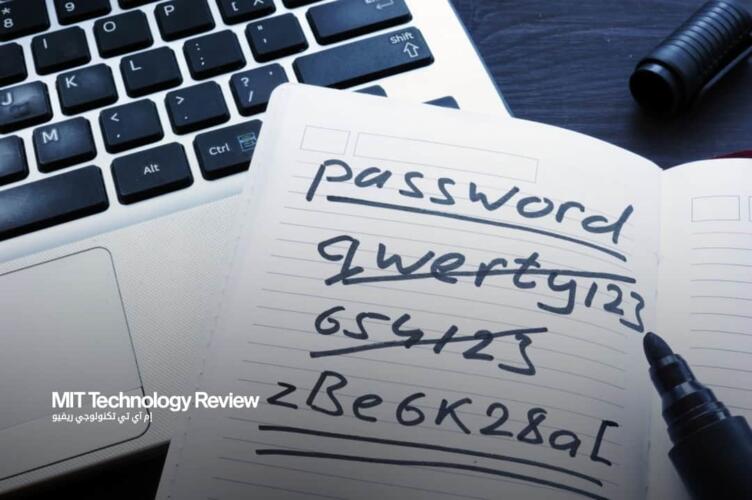 * 8
( 9
) 0
P
{ [
I
O
L
: ;
" '
Shift
J
K
< ,
> .
? /
M
Alt
Ctrl
password
qwerty123
654123
zBe6K28a[
MIT Technology Review
إم آي تي تكنولوجي ريفيو